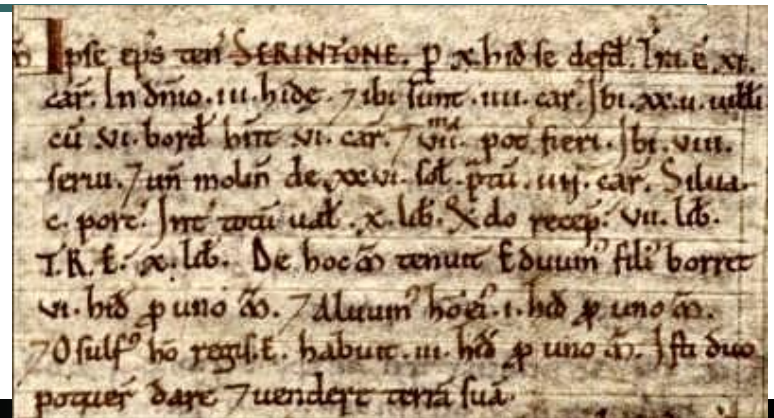 m̄ Ipse ep̄s ten̄ SERINTONE. p̱ x. hid̄ se defd̄. Tr̄a. ē. xi.
car̄. In dn̄io. iii. hide. ⁊ ibi sunt. iiii. car̄. Ibi. xx. v. uilli
cū vi. bord̄ hn̄t vi. car̄. ⁊ vii.ᵐᵃ pot̄ fieri. Ibi. viii.
serui. ⁊ un̄ molin̄ de xxvi. sol̄. p̄tū. iiij. car̄. Silua.
c. porc̄. Int̄ totū ual̄. x. lib̄. Q̄do recep̄. vii. lib̄.
T.R.E. x. lib̄. De hoc m̄ tenuit Eduuin᾽ fili᾽ borret
vi. hid̄ p̱ uno m̄. ⁊ Aluuin᾽ hō ei᾽. i. hid̄ p̱ uno m̄.
⁊ Osulf᾽ hō regis. E. habuit. iii. hid̄ p̱ uno m̄. Isti duo
potuer̄ dare ⁊ uendere terrā suā.